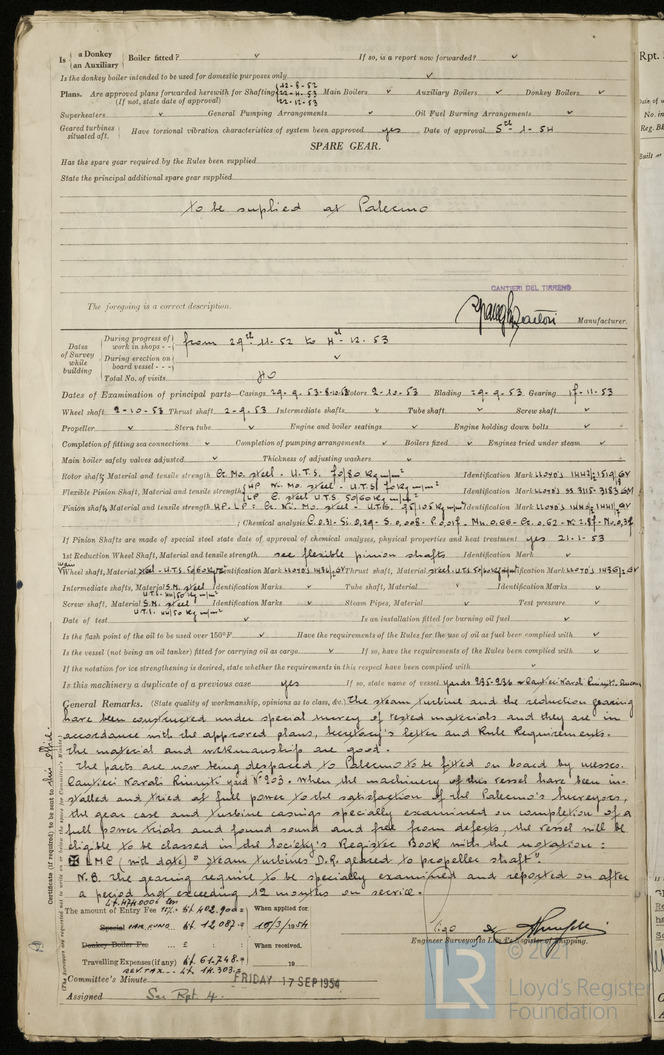 Is a Donkey / an Auxiliary Boiler fitted? ✓ If so, is a report now forwarded? ✓
Is the donkey boiler intended to be used for domestic purposes only ✓
Plans. Are approved plans forwarded herewith for Shafting 22-12-53 Main Boilers ✓ Auxiliary Boilers ✓ Donkey Boilers ✓
(If not, state date of approval)
Superheaters ✓ General Pumping Arrangements ✓ Oil Fuel Burning Arrangements ✓
Geared turbines situated aft. Have torsional vibration characteristics of system been approved yes Date of approval 5th-1-54
SPARE GEAR.
Has the spare gear required by the Rules been supplied
State the principal additional spare gear supplied
to be suplied at Palermo
CANTIERI DEL TIRRENO
The foregoing is a correct description.
Manufacturer.
Dates of Survey while building
During progress of work in shops - - from 29th-11-52 to 4th-12-53
During erection on board vessel - - - ✓
Total No. of visits 40
Dates of Examination of principal parts—Casings 29-9-53-8-10-53 Rotors 2-10-53 Blading 29-9-53 Gearing 17-11-53
Wheel shaft 2-10-53 Thrust shaft 2-9-53 Intermediate shafts ✓ Tube shaft ✓ Screw shaft ✓
Propeller ✓ Stern tube ✓ Engine and boiler seatings ✓ Engine holding down bolts ✓
Completion of fitting sea connections ✓ Completion of pumping arrangements ✓ Boilers fixed ✓ Engines tried under steam ✓
Main boiler safety valves adjusted ✓ Thickness of adjusting washers ✓
Rotor shafts, Material and tensile strength Cr. Mo. steel - U.T.S. 70/80 Kg m/m² Identification Mark LLOYD'S
Flexible Pinion Shaft, Material and tensile strength HP Ni. Mo. steel - U.T.S. Kg m/m² Identification Mark LLOYD'S
LP C. steel U.T.S. 50/60 Kg m/m²
Pinion shafts, Material and tensile strength HP. LP = Cr. Ni. Mo. steel - U.T.S. 95/105 Kg m/m² Identification Mark LLOYD'S
; Chemical analysis C. 0.31 - Si. 0.29 - S. 0.008 - P. 0.017 - Mn. 0.66 - Cr. 0.62 - Ni 2.87 -
If Pinion Shafts are made of special steel state date of approval of chemical analyses, physical properties and heat treatment yes 21-1-53
1st Reduction Wheel Shaft, Material and tensile strength see flexible pinion shafts Identification Mark ✓
Wheel shaft, Material steel - U.T.S. 50/60 Kg m/m² Identification Mark LLOYD'S Thrust shaft, Material steel U.T.S. 50/60 Kg m/m² Identification Mark LLOYD'S
Intermediate shafts, Material S.M. steel Identification Marks ✓ Tube shaft, Material ✓ Identification Marks ✓
U.T.S. 44/50 Kg m/m²
Screw shaft, Material S.M. steel Identification Marks ✓ Steam Pipes, Material ✓ Test pressure ✓
U.T.S. 44/50 Kg m/m²
Date of test ✓ Is an installation fitted for burning oil fuel ✓
Is the flash point of the oil to be used over 150°F. ✓ Have the requirements of the Rules for the use of oil as fuel been complied with ✓
Is the vessel (not being an oil tanker) fitted for carrying oil as cargo ✓ If so, have the requirements of the Rules been complied with ✓
If the notation for ice strengthening is desired, state whether the requirements in this respect have been complied with ✓
Is this machinery a duplicate of a previous case yes If so, state name of vessel yards 235-236 Cantieri Navali Riuniti - Ancona
General Remarks. (State quality of workmanship, opinions as to class, &c.) The steam turbine and the reduction gearing
have been constructed under special survey of tested materials and they are in
accordance with the approved plans, Secretary's letter and Rule Requirements.
The material and workmanship are good.
The parts are now being despaced to Palermo to be fitted on board by messrs.
Cantieri Navali Riuniti yard N° 203. When the machinery of this vessel have been in-
stalled and tried at full power to the satisfaction of the Palermo's Surveyors,
the gear case and turbine casings specially examined on completion of a
full power trials and found sound and free from defects, the vessel will be
eligible to be classed in the Society's Register Book with the notation:
✠ LMC (with date) "steam turbines D.R. geared to propeller shaft".
N.B. The gearing require to be specially examined and reported on after
a period not exceeding 12 months on service.
The amount of Entry Fee Lt. 402.900 = When applied for
Special FUND Lt. 12.087 = 10/3/1954
Donkey Boiler Fee ... £ : : When received.
Travelling Expenses (if any) Lt. 61.748 = 19
REV. TAX... Lt. 14.303 =
Engineer Surveyor to Lloyd's Register of Shipping.
Committee's Minute FRIDAY 17 SEP 1954
Assigned See Rpt. 4.
Certificate (if required) to be sent to this office.
(The Surveyors are requested not to write on or below the space for Committee's Minute.)
© 2021
LR
Lloyd's Register
Foundation
Rpt.